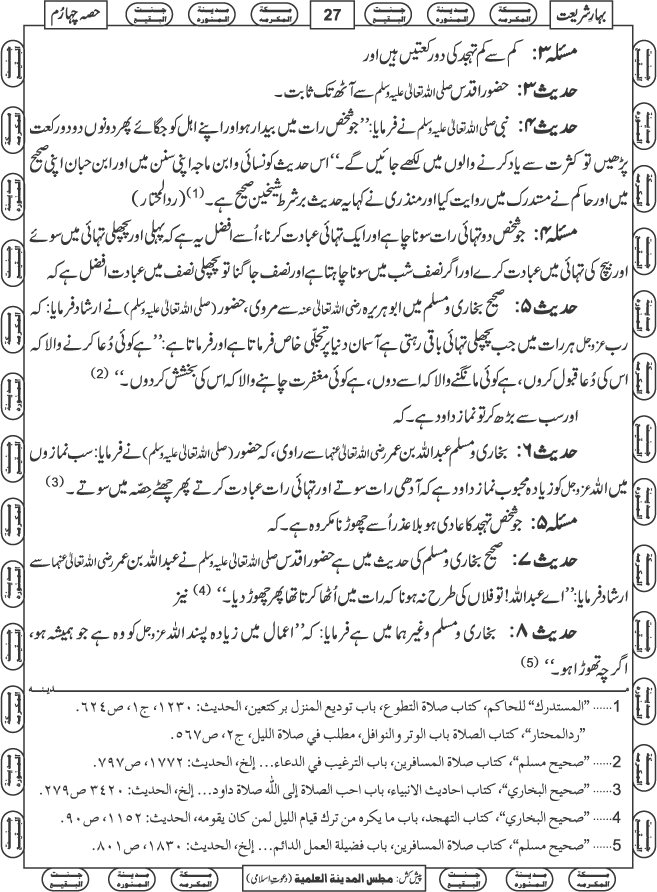 بہارِ شریعت
27
حصہ چہارم
مسئلہ ۳: کم سے کم تہجد کی دو رکعتیں ہیں اور
حدیث ۳: حضور اقدس صلی اللہ تعالیٰ علیہ وسلم سے آٹھ تک ثابت۔
حدیث ۴: نبی صلی اللہ تعالیٰ علیہ وسلم نے فرمایا: ’’جو شخص رات میں بیدار ہو اور اپنے اہل کو جگائے پھر دونوں دو دو رکعت
پڑھیں تو کثرت سے یاد کرنے والوں میں لکھے جائیں گے۔‘‘ اس حدیث کو نسائی و ابن ماجہ اپنی سنن میں اور ابن حبان اپنی صحیح
میں اور حاکم نے مستدرک میں روایت کیا اور منذری نے کہا یہ حدیث بر شرط شیخین صحیح ہے۔ (1) (ردالمحتار)
مسئلہ ۴: جو شخص دو تہائی رات سونا چاہے اور ایک تہائی عبادت کرنا، اُسے افضل یہ ہے کہ پہلی اور پچھلی تہائی میں سوئے
اور بیچ کی تہائی میں عبادت کرے اور اگر نصف شب میں سونا چاہتا ہے اور نصف جاگنا تو پچھلی نصف میں عبادت افضل ہے کہ
حدیث ۵: صحیح بخاری و مسلم میں ابوہریرہ رضی اللہ تعالیٰ عنہ سے مروی، حضور (صلی اللہ تعالیٰ علیہ وسلم) نے ارشاد فرمایا: کہ
رب عزوجل ہر رات میں جب پچھلی تہائی باقی رہتی ہے آسمان دنیا پر تجلّی خاص فرماتا ہے اور فرماتا ہے: ’’ہے کوئی دُعا کرنے والا کہ
اس کی دُعا قبول کروں، ہے کوئی مانگنے والا کہ اسے دوں، ہے کوئی مغفرت چاہنے والا کہ اس کی بخشش کر دوں۔‘‘ (2)
اور سب سے بڑھ کر تو نمازِ داود ہے۔ کہ
حدیث ۶: بخاری و مسلم عبداللہ بن عمر رضی اللہ تعالیٰ عنہما سے راوی، کہ حضور (صلی اللہ تعالیٰ علیہ وسلم) نے فرمایا: سب نمازوں
میں اللہ عزوجل کو زیادہ محبوب نماز داود ہے کہ آدھی رات سوتے اور تہائی رات عبادت کرتے پھر چھٹے حِصّہ میں سوتے۔ (3)
مسئلہ ۵: جو شخص تہجد کا عادی ہو بلا عذر اُسے چھوڑنا مکروہ ہے۔ کہ
حدیث ۷: صحیح بخاری و مسلم کی حدیث میں ہے حضور اقدس صلی اللہ تعالیٰ علیہ وسلم نے عبداللہ بن عمر رضی اللہ تعالیٰ عنہما سے
ارشاد فرمایا: ’’اے عبداللہ! تو فلاں کی طرح نہ ہونا کہ رات میں اُٹھا کرتا تھا پھر چھوڑ دیا۔‘‘ (4) نیز
حدیث ۸: بخاری و مسلم وغیرہما میں ہے فرمایا: کہ ’’اعمال میں زیادہ پسند اللہ عزوجل کو وہ ہے جو ہمیشہ ہو،
اگرچہ تھوڑا ہو۔‘‘ (5)
مدینہ
1...... ”المستدرك“ للحاكم، كتاب صلاة التطوع، باب توديع المنزل بركعتين، الحديث: ١٢٣٠، ج١، ص٦٢٤.
”ردالمحتار“، كتاب الصلاة باب الوتر و النوافل، مطلب في صلاة الليل، ج٢، ص٥٦٧.
2...... ”صحيح مسلم“، كتاب صلاة المسافرين، باب الترغيب في الدعاء... إلخ، الحديث: ١٧٧٢، ص٧٩٧.
3...... ”صحيح البخاري“، كتاب احاديث الانبياء، باب احب الصلاة إلى اللّٰه صلاة داود... إلخ، الحديث: ٣٤٢٠، ص٢٧٩.
4...... ”صحيح البخاري“، كتاب التهجد، باب ما يكره من ترك قيام الليل لمن كان يقومه، الحديث: ١١٥٢، ص٩٠.
5...... ”صحيح مسلم“، كتاب صلاة المسافرين، باب فضيلة العمل الدائم... إلخ، الحديث: ١٨٣٠، ص٨٠١.
پیش کش: مجلس المدینة العلمیة (دعوتِ اسلامی)